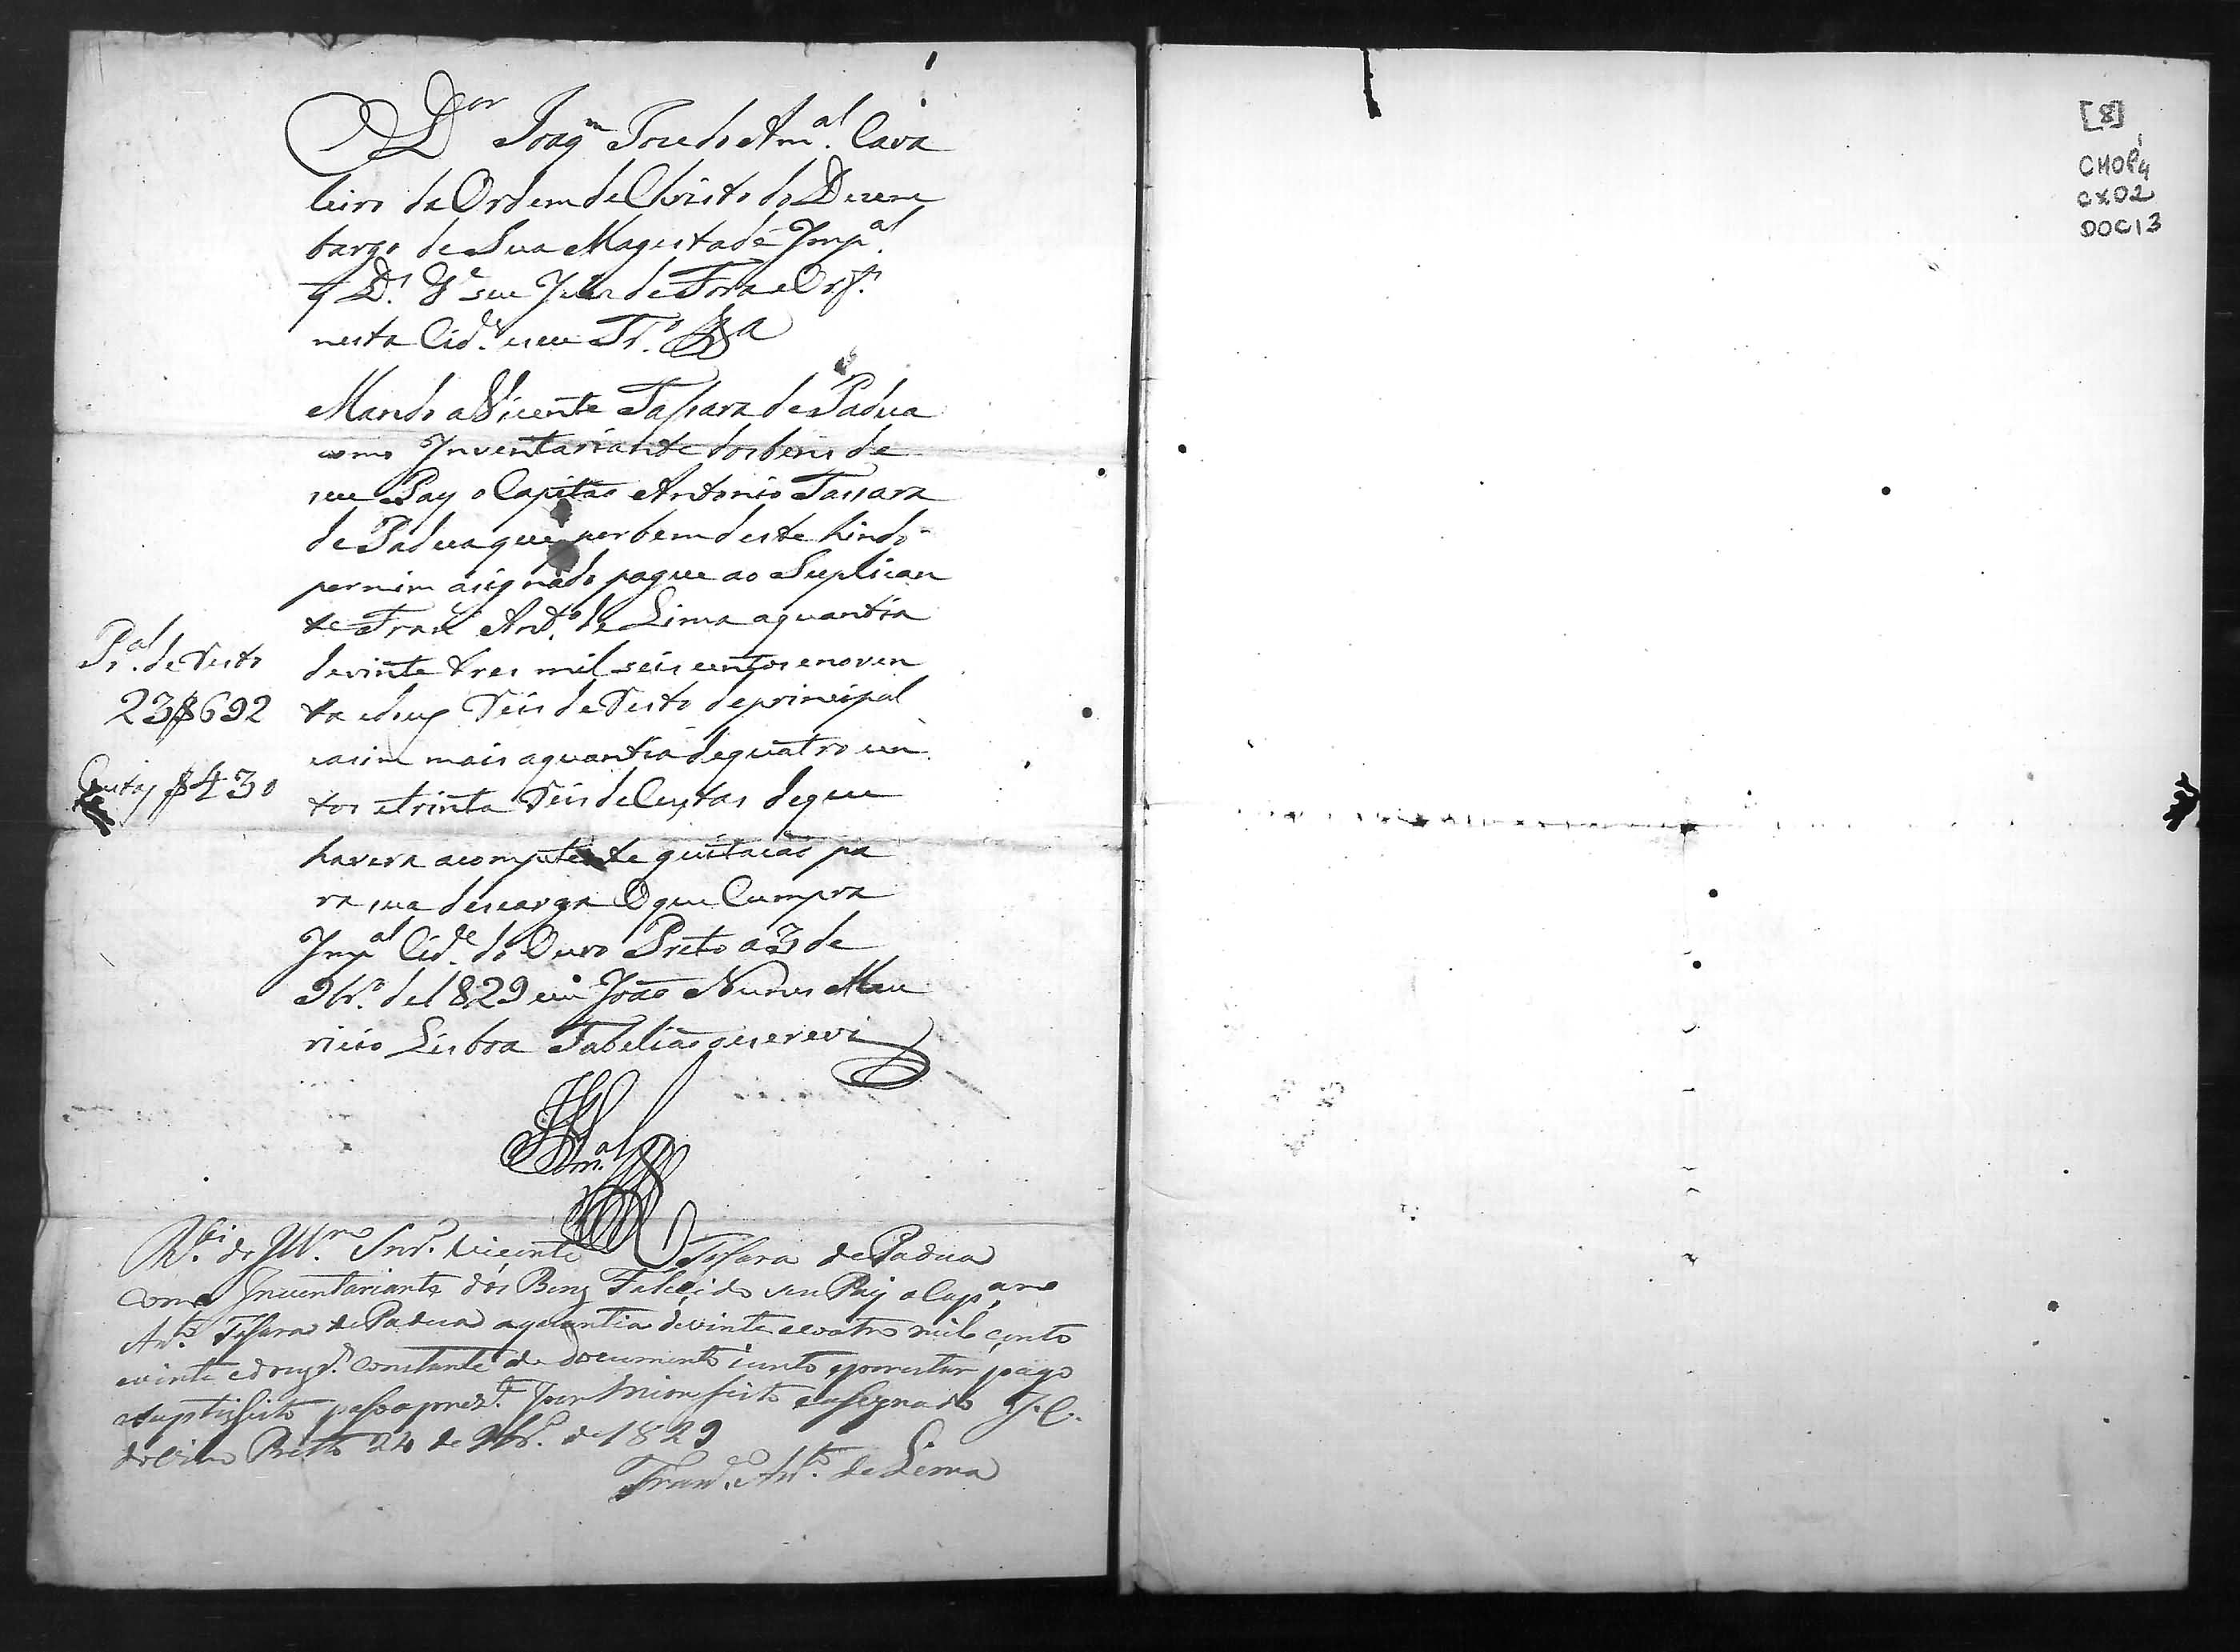 Dor Joaqm Joze do Amal. Cava
leiro da Ordem de Christo do Dezem
bargo de Sua Magestade Impal.
q D.s G.e seu Juiz de Fora e Orf.s
nesta Cide. e seu Tr.o &a
Mando a Vicente Tassara de Padua
como Inventariante dos bens de
seu Pay o Capitão Antonio Tassara
de Padua que por bem deste hindo
por mim asignado pague ao Suplican
te Franco Anto. de Lima a quantia
de vinte tres mil seis centos e noven
ta e dus Reis de Resto de principal
e asim mais a quantia de quatro cen
tos e trinta Reis de Custas de que
havera a competente quitacão pa
ra sua descarga O que Cumpra
Impal Cide. do Ouro Preto a 3 de
9br.o de 1829 eu João Nunes Mau
ricio Lisboa Tabelião q escrevi
Pr.al de Resto
23$692
Custas $430
Amal
R.bi do Illmo Snr. Vicente Tassara de Padua
como Inventariante dos Benz Falecido seu Pay o Capam
Anto Tassara de Padua a quantia de vinte e coatro mil cento
e vinte e dus r.s constante do documento junto e por estar pago
e sastisfeito passo a prezte. por mim feito e assegnado I. C.
do Ouro Preto 24 de 9br.o de 1829
Franco. Anto. de Lima
[8]
CMOP
CX02
DOC13